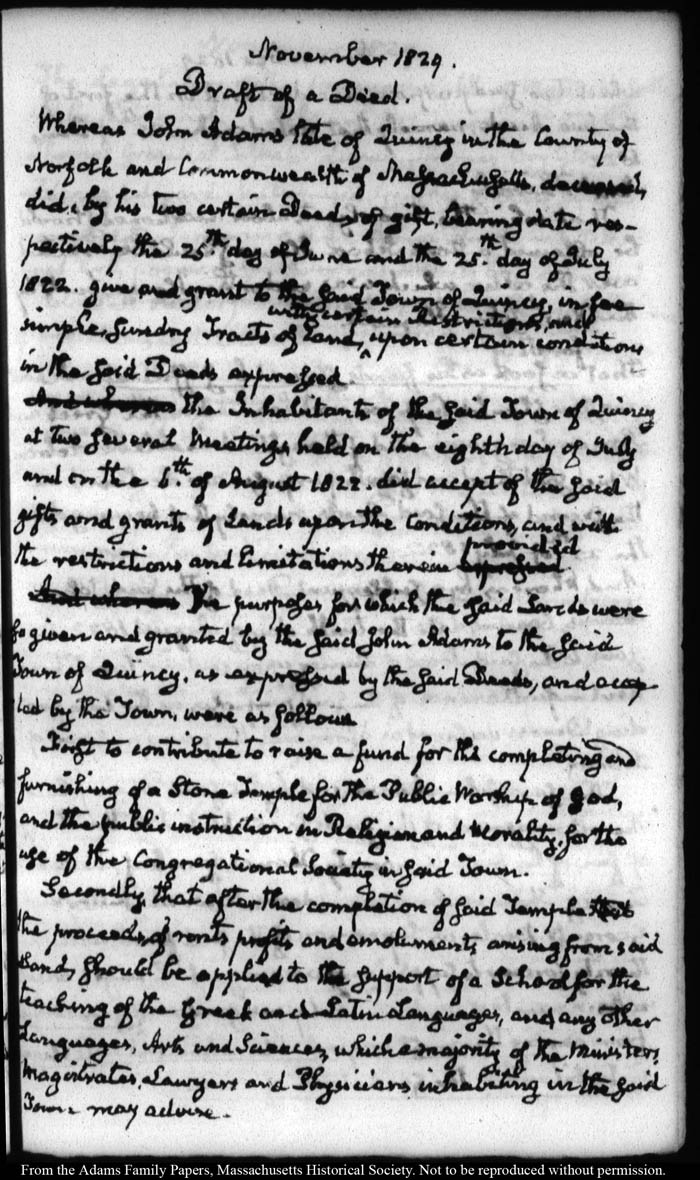 November 1829.
Draft of a Deed.
Whereas John Adams late of Quincy in the County of
Norfolk and Commonwealth of Massachusetts, deceased,
did, by his two certain Deeds of gift, bearing date res-
pectively the 25.th day of June and the 25.th day of July
1822. give and grant to the said Town of Quincy, in fee
with certain Restrictions, and
simple, sundry Tracts of Land, ^ upon certain conditions
in the said Deeds expressed
And whereas the Inhabitants of the said Town of Quincy
at two several Meetings held on the eighth day of July
and on the 6.th of August 1822. did accept of the said
gifts and grants of Lands upon the Conditions, and with
provided
the restrictions and limitations therein expressed.
And whereas The purposes for which the said Lands were
so given and granted by the said John Adams to the said
Town of Quincy, as expressed by the said Deeds, and accep
ted by the Town, were as follows
First to contribute to raise a fund for the completing and
furnishing of a Stone Temple for the Public Worship of God,
and the public instruction in Religion and Morality, for the
use of the Congregational Society in said Town.
Secondly, that after the completion of said Temple that
the proceeds of rents profits and emoluments arising from said
Lands, should be applied to the support of a School for the
teaching of the Greek and Latin Languages, and any other
Languages, Arts and Sciences, which a majority of the Ministers,
Magistrates, Lawyers and Physicians inhabiting in the said
Town may advise.
From the Adams Family Papers, Massachusetts Historical Society. Not to be reproduced without permission.